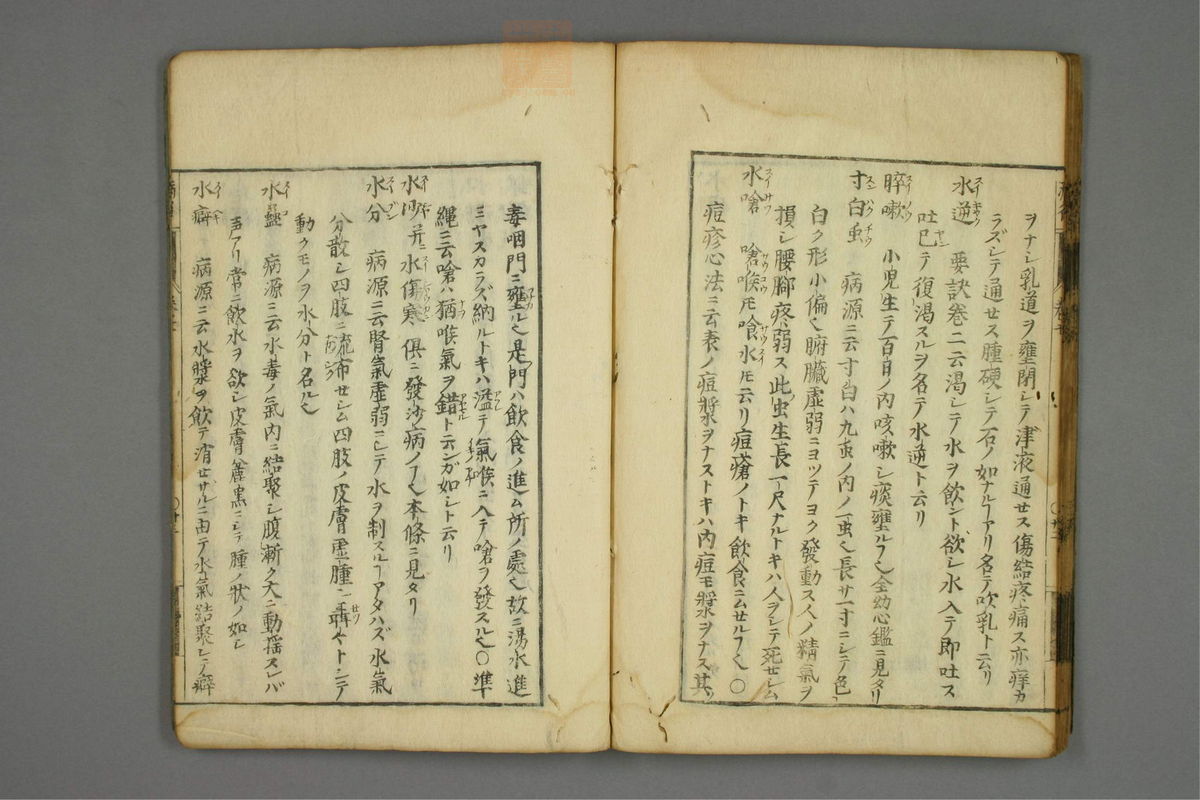 ヲナシ乳道ヲ壅閉シテ津液通セス傷結疼痛ス亦痒カ
ラズシテ通セス腫硬シテ石ノ如ナルヿアリ名テ吹乳ト云リ
水逆 要訣巻二云渇シテ水ヲ飲ント欲シ水入テ即吐ス
吐已テ復渇スルヲ名テ水逆ト云リ
睟嗽 小児生テ百日ノ内咳嗽シ痰壅ルヿ也全幼心鑑ニ見タリ
寸白虫 病源ニ云寸白ハ九虫ノ内ノ一虫也長サ一寸ニシテ色
白ク形小偏也腑臓虚弱ニヨツテヨク發動ス人ノ精氣ヲ
損シ腰脚疼弱ス此虫生長一尺ナルトキハ人ヲシテ死セシム
水嗆 嗆喉モ嗆水モ云リ痘瘡ノトキ飲食ニムセルヿ也〇
痘疹心法ニ云表ノ痘漿ヲナストキハ内痘モ漿ヲナス其
毒咽門ニ壅ル也是門ハ飲食ノ進ム所ノ處也故ニ湯水進
ミヤスカラズ納ルトキハ溢テ氣喉ニ入テ嗆ヲ發スル也〇準
縄ニ云嗆ハ猶喉氣ヲ錯ト云ンガ如シト云リ
水沙 并ニ水傷寒 俱ニ發沙病ノヿ也本條ニ見タリ
水分 病源ニ云腎氣虚弱ニシテ水ヲ制スルヿアタハズ水氣
分散シ四肢ニ流布セシム四肢ノ皮膚虚腫シ聶々トシテ
動クモノヲ水分ト名ル也
水蠱 病源ニ云水毒ノ氣内ニ結聚シ腹漸ク大ニ動揺スレバ
声アリ常ニ飲水ヲ欲シ皮膚麁黒ニシテ腫ノ状ノ如シ
水癖 病源ニ云水漿ヲ飲テ消セザルニ由テ水氣結聚シテ癖